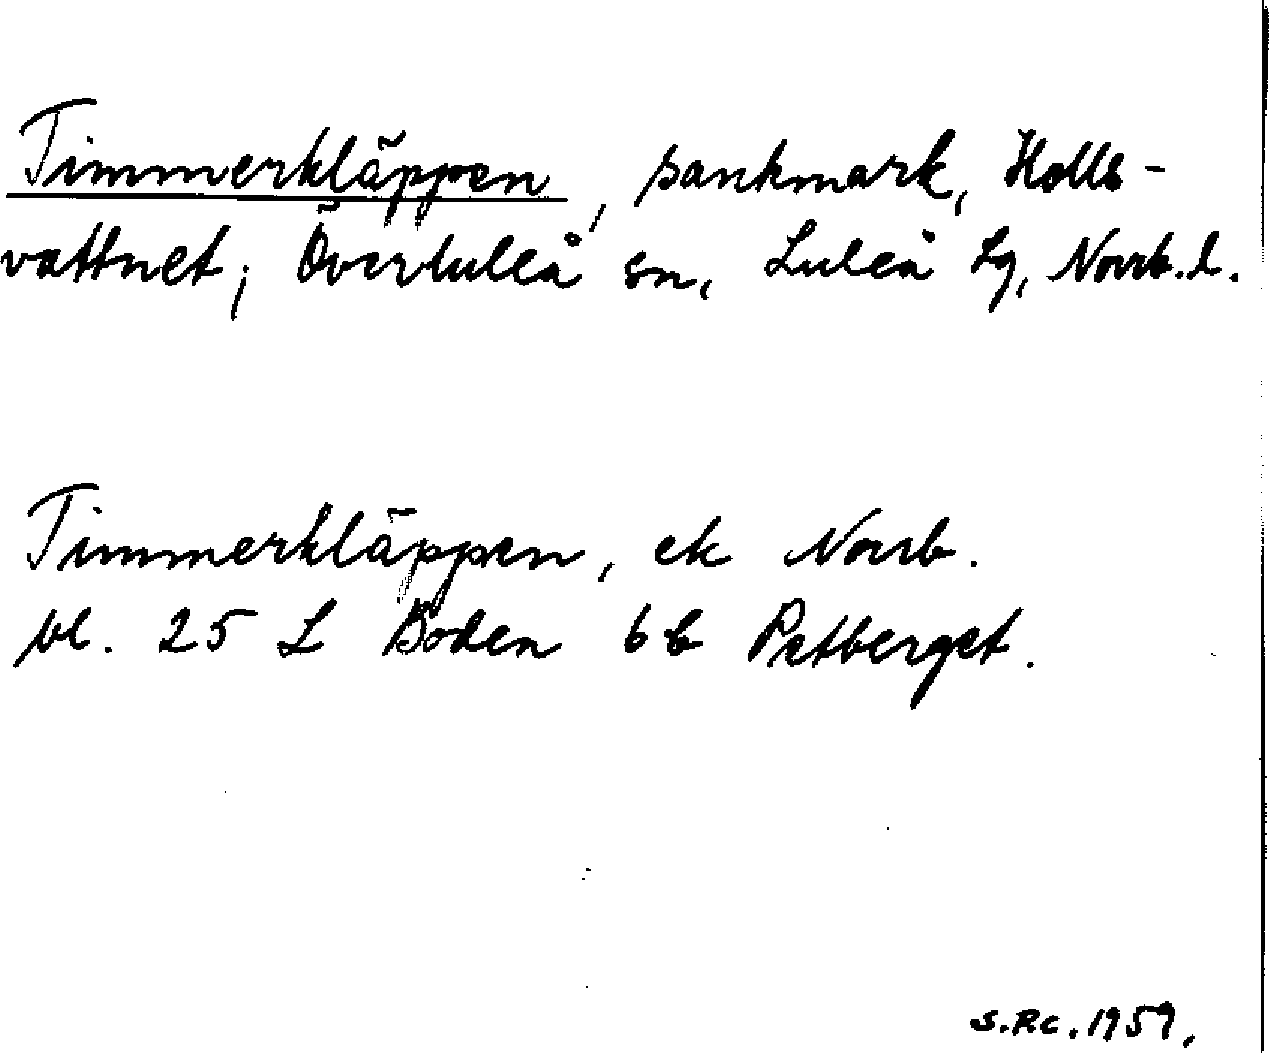 Timmerkläppen, sankmark, Holls-
vattnet, Överluleå sn, Luleå tg, Norrb.l.
Timmerkläppen, ek Norrb.
bl. 25 L Boden 6b Petberget.
S.Rc. 1959.